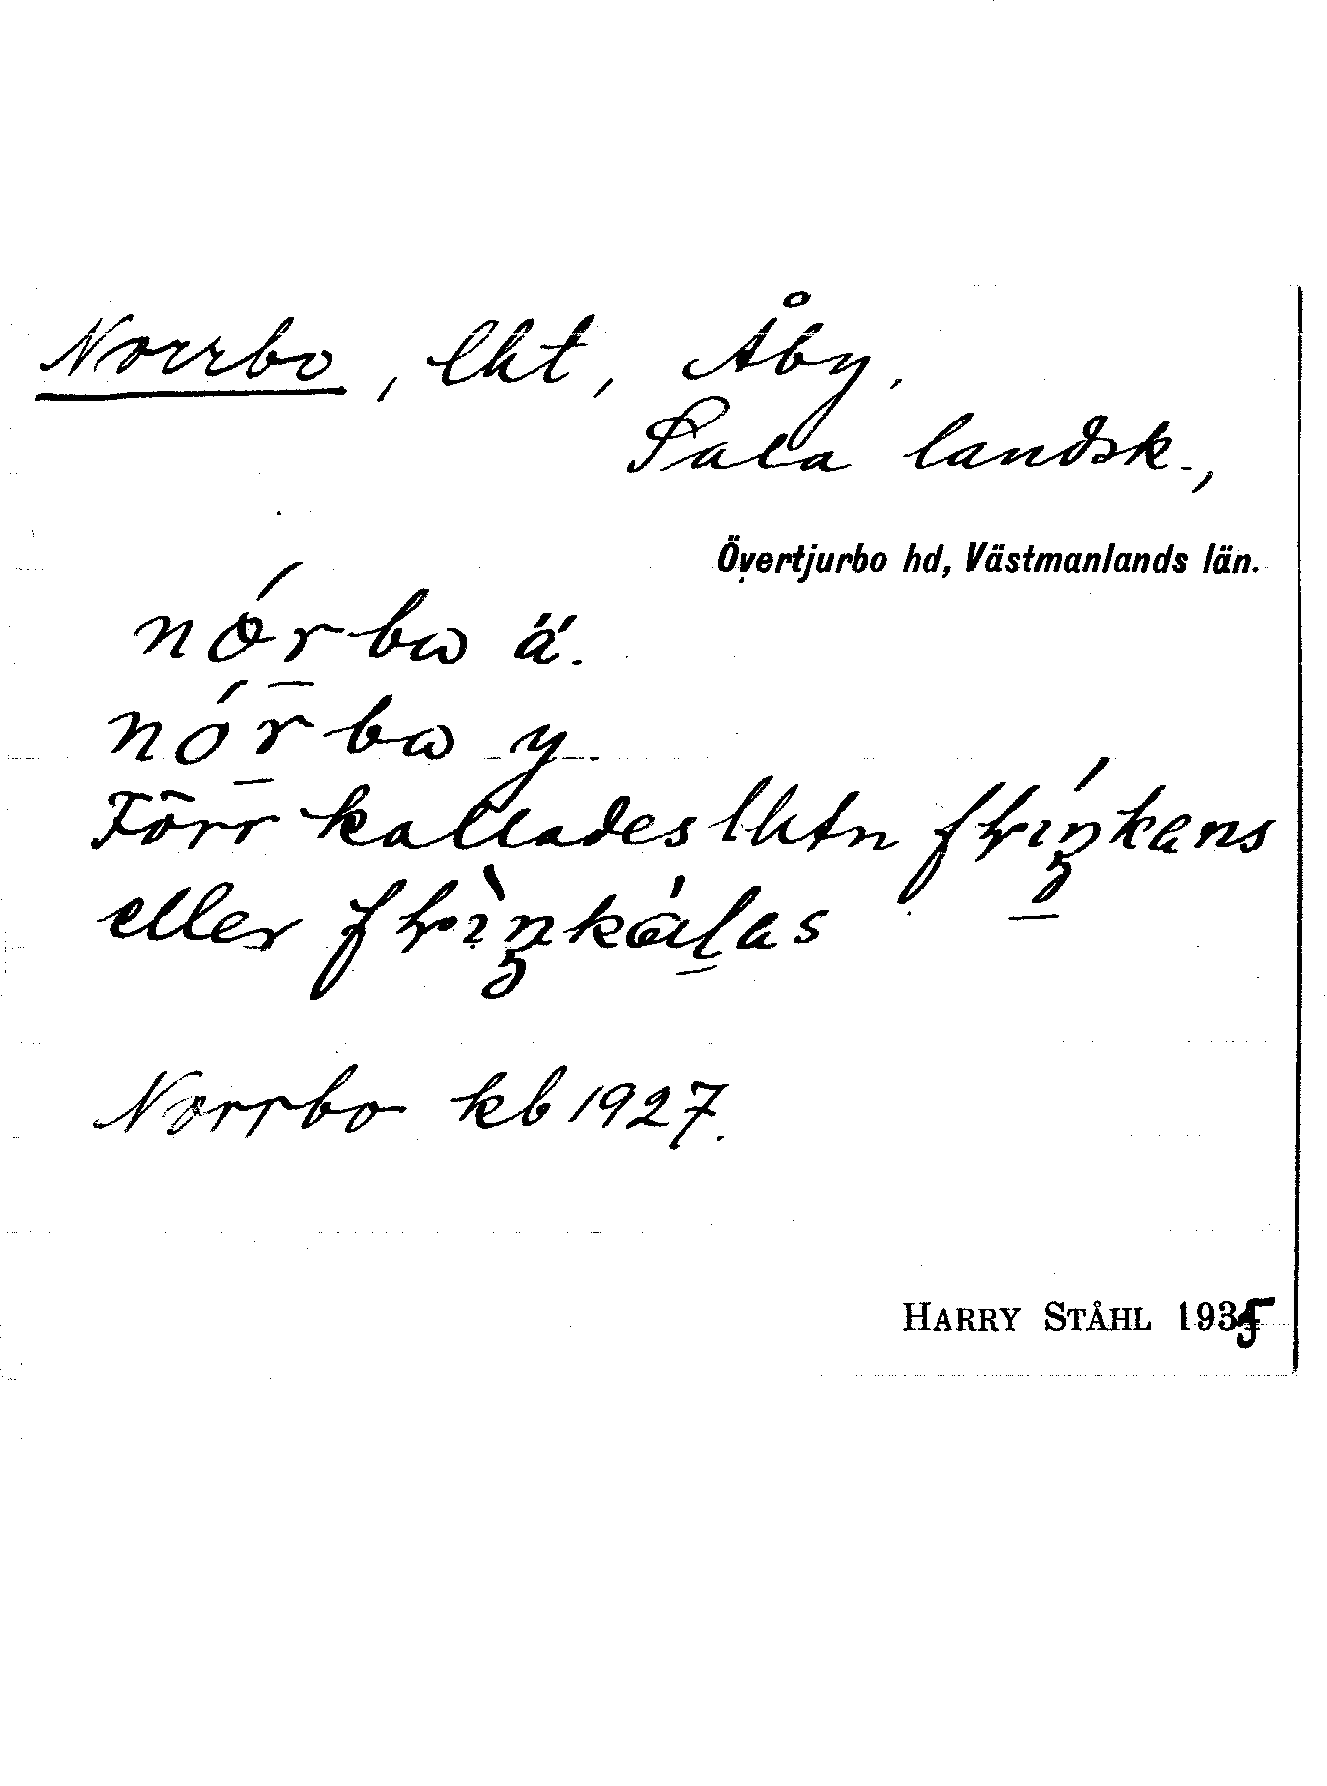 Norrbo, lht, Åby,
Sala landsk.,
Övertjurbo hd, Västmanlands län.
nórbω ä.
nórbω y.
Förr kallades lhtn frıŋ́kans
eller frı̀ŋkáɭas
Norrbo kb 1927.
HARRY STÅHL 1935